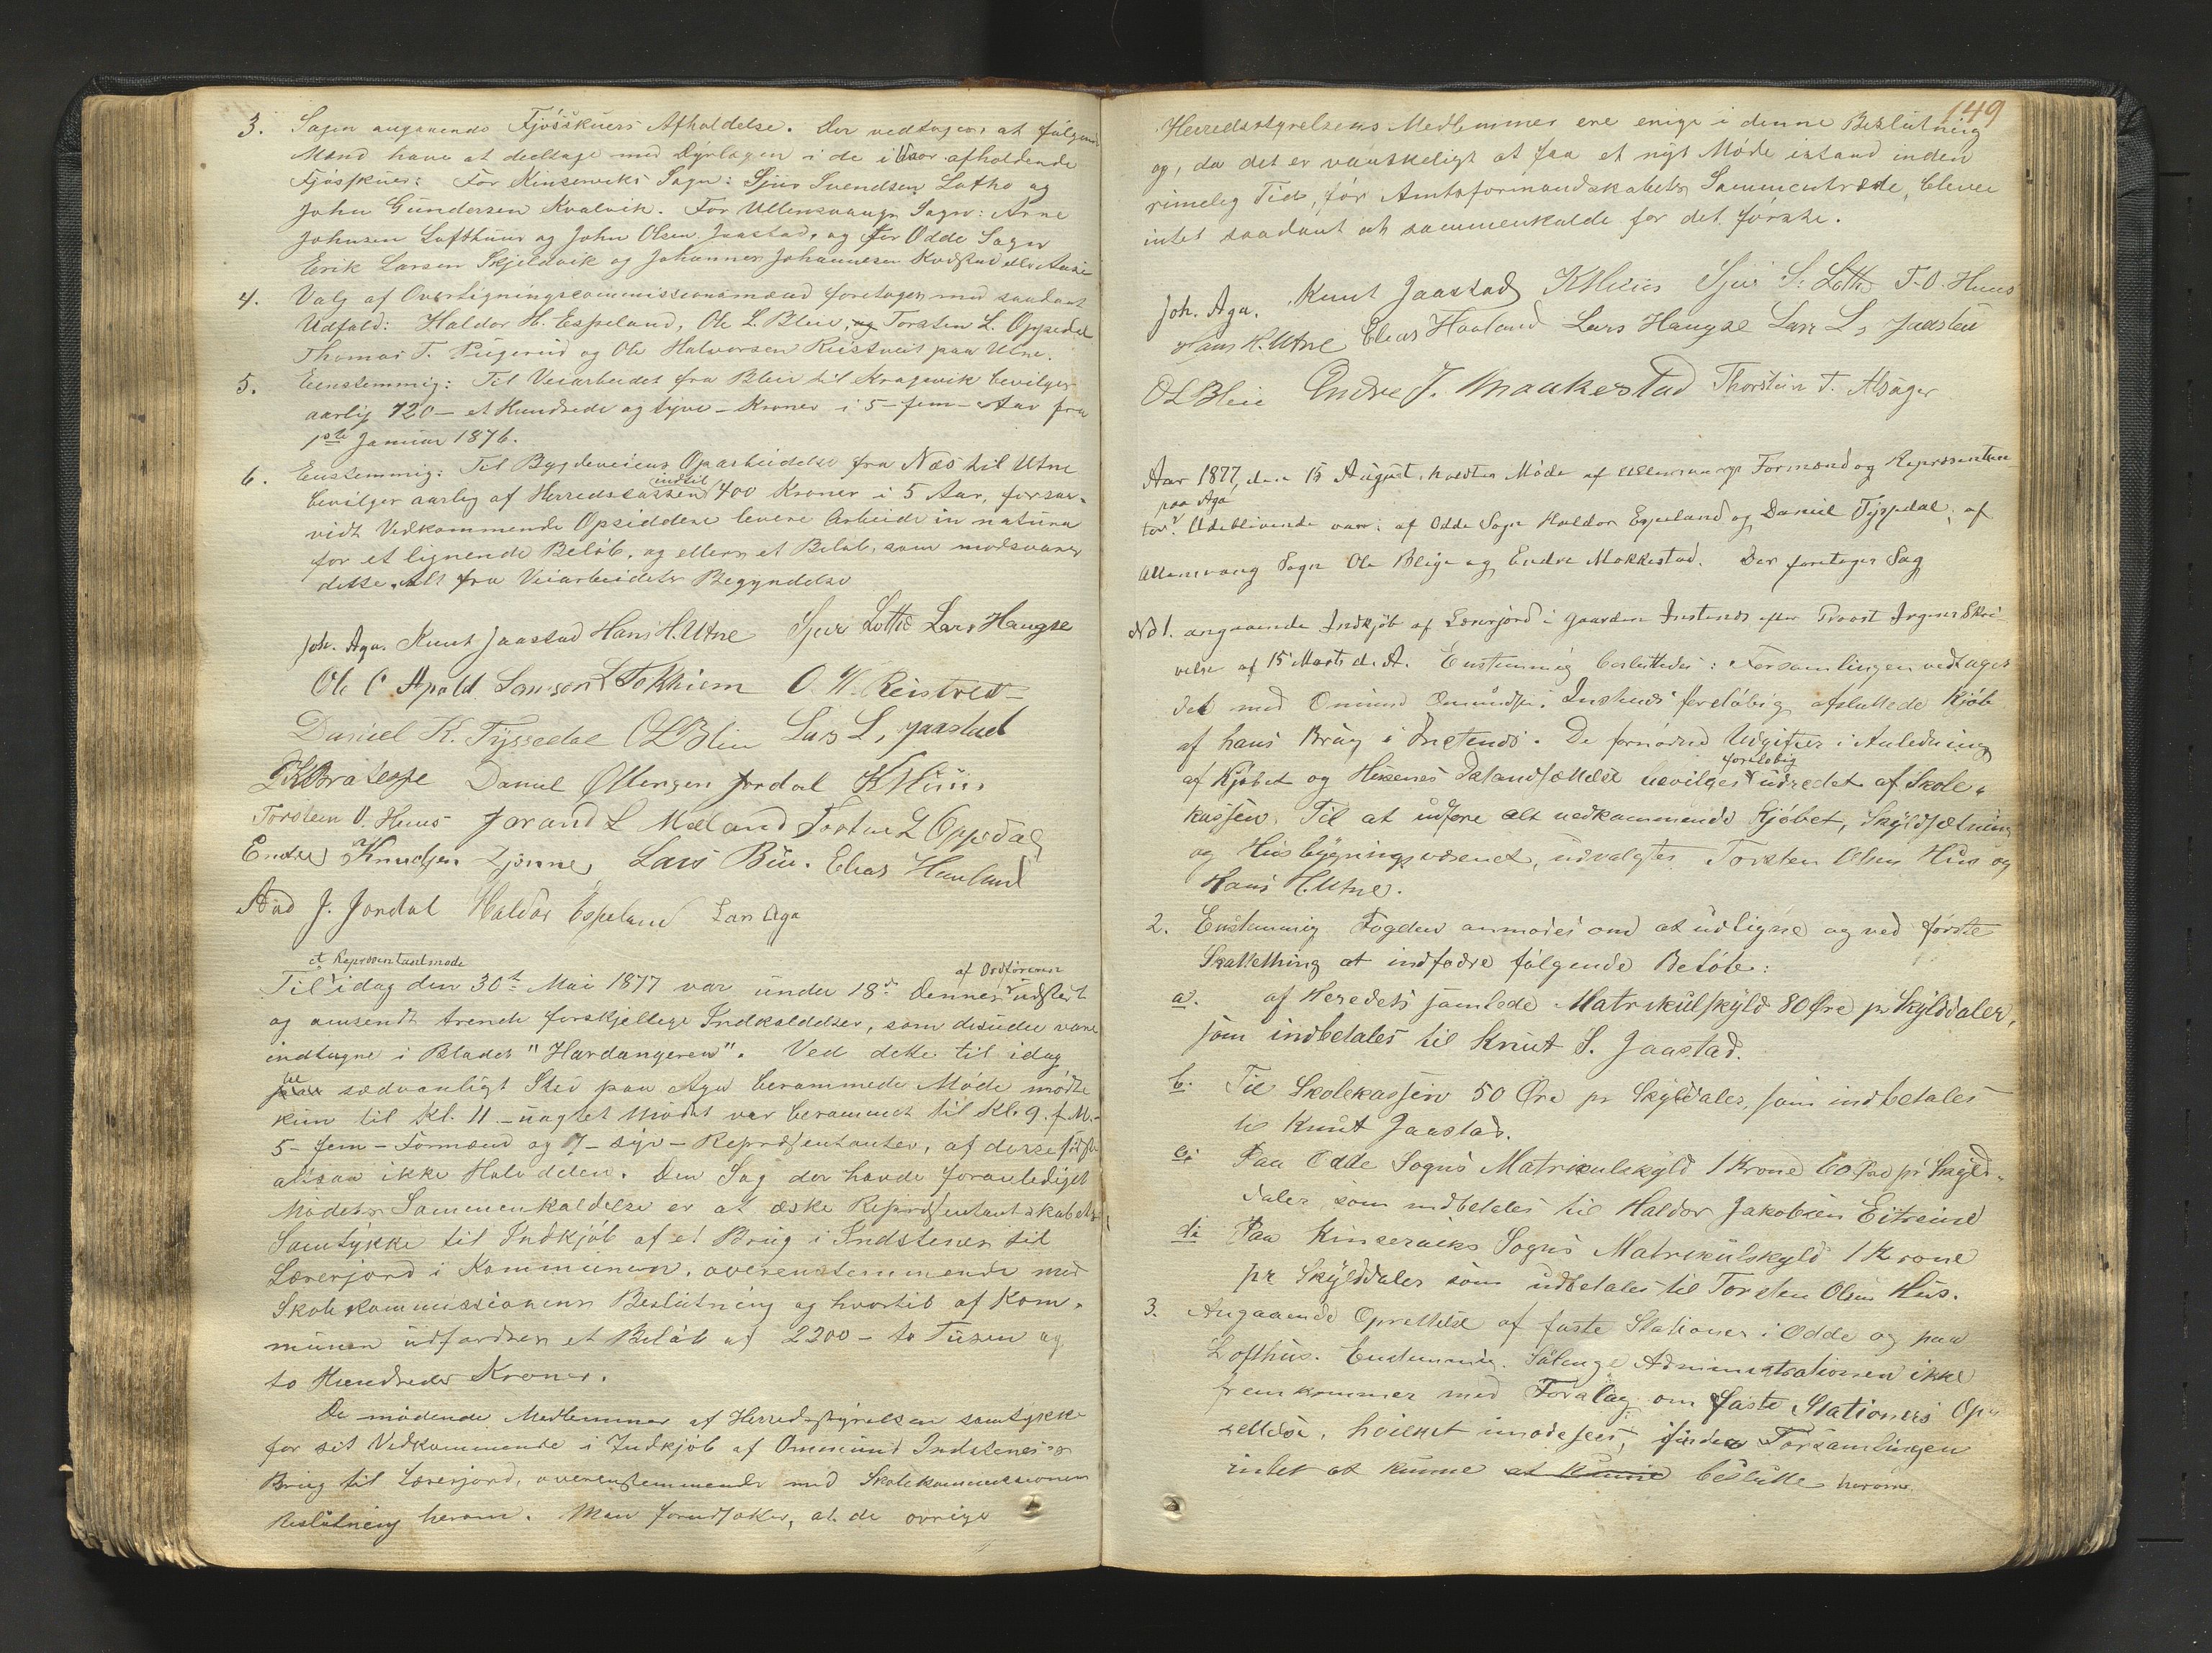 3. Sagen angaaende Fjøsskuers Afholdelse. Der vedtages, at følgende
Mænd have at deeltage med Dyrlægen i de i Vaar afholdende
Fjøsskuer: For Kinserviks Sogn: Sjur Svendsen Lotho og
John Gundersen Kvalvik. For Ullensvangs Sogn: Arne
Johnsen Lofthuus og John Olsen Jaastad, og for Odde Sogn
Erik Larsen Skjeldvik og Johannes Johannesen
4. Valg af Overligningscommissionsmænd foretages med saadant
Udfald: Haldor H. Espeland, Ole L. Bleie, og Torsten L. Oppedal
Thomas T. og Ole Halvorsen Reistveit paa Utne.
5. Eenstemmig: Til Veiarbeidet fra Bleie til Kragevik bevilges
aarlig 120 – et Hundrede og tyve – Kroner i 5 – fem – Aar fra
1ste Januar 1876.
6. Enstemmig: Til Bygdeveiens Oparbeidelse fra Næs til Utne
bevilges aarlig af Herredscassen indtil 400 Kroner i 5 Aar, forsaa-
vidt Vedkommende Opsiddere levere Arbeide in natura
for et lignende Beløb, og ellers et Beløb, som modsvarer
dette. Alt fra Veiarbeidets Begyndelse
Joh. Aga. Knut Jaastad Hans H. Utne Sjur Lotho Lars Haugse
Ole O. Apold Samson L Tokheim O. H. Reistvet
Daniel K. Tyssedal OLBleie Lars L, Jaastad
Daniel Jordal
Torsten O. Huus Jørand L Mæland Torsten L Oppedal
Endre Knudsen Lars Bu. Elias Hauland
Aad J. Jordal Haldor Espeland Lars Aga
et Repræsentantmøde af Ordføreren
Til idag den 30te Mai 1877 var under 18de dennes udstedt
og omsendt trende forskjellige Indkaldelser, som desuden vare
indtagne i Bladet "Hardangeren". Ved dette til idag
til sædvanligt Sted paa Aga berammede Møde mødte
kun til Kl. 11 – uagtet Mødet var berammet til Kl. 9. f. M. –
5 – fem – Formænd og 7 – syv – Repræsentanter, af disse sidste
altsaa ikke Halvdelen. Den Sag der havde foranlediget
Mødets Sammenkaldelse er at æske Repræsentantskabets
Samtykke til Indkjøb af et Brug i Indstenes til
Lærerjord i Kommunen, overensstemmende med
Skolekommissionens Beslutning og hvortil af Kom-
munen udfordres et Beløb af 2200 – to Tusen og
to Hundrede Kroner.
De mødende Medlemmer af Herredsstyrelsen samtykke
for sit Vedkommende i Indkjøb af Ommund Indstenes's
Brug til Lærerjord, overensstemmende med Skolekommissionens
Beslutning herom. Man forudsætter, at de øvrige
149
Herredsstyrelsens Medlemmer ere enige i denne Beslutning
og, da det er vanskeligt at faa et nyt Møde istand inden
rimelig Tid, før Amtsformandskabets Sammentræde, bliver
intet saadant at sammenkalde for det første.
Joh. Aga. Knut Jaastad Sjur S. Lotho T. O. Huus
Hans H. Utne Elias Hauland Lars Haugse Lars L, Jaastad
OLBleie Endre J. Maakestad Thorstein T. Alsager
Aar 1877, den 15 August, holdtes Møde af Ullensvangs Formænd og Repræsentan-
paa Aga
ter. Udeblivende vare: af Odde Sogn Haldor Espeland og Daniel Tyssedal, af
Ullensvang Sogn Ole Bleie og Endre Mokkestad. Der foretages Sag
No 1. angaaende Indkjøb af Lærerjord i Gaarden Instenes efter Provst Irgens Skri-
velse af 15 Marts d. A. Enstemmig besluttedes: Forsamlingen vedtager
det med Omund Omundsen Instenes foreløbig afsluttede Kjøb
af hans Brug i Instenes. De fornødne Udgifter i Anledning
af Kjøbet og Husenes Istandsættelse bevilges foreløbig udredet af Skole-
kassen. Til at udføre alt vedkommende Kjøbet, Skyldsætning
og Husbygningsvæsenet, udvalgtes Torsten Olsen Hus og
Hans H. Utne.
2. Enstemmig Fogden anmodes om at udligne og ved første
Skattething at indfodre følgende Beløb:
a. af Heredets samlede Matrikulskyld 80 Øre pr Skylddaler,
som indbetales til Knut S. Jaastad.
b. Til Skolekassen 50 Øre pr Skylddaler, som indbetales
til Knut Jaastad.
c. Paa Odde Sogns Matrikulskyld 1 Krone 60 Øre pr Skyld-
daler som indbetales til Haldor Jakobsen Eitreim
d. Paa Kinserviks Sogns Matrikulskyld 1 Krone
pr Skylddaler som udbetales til Torsten Olsen Hus.
3. Angaaende Oprettelse af faste Stationer i Odde og paa
Lofthus. Enstemmig. Sålenge Administrationen ikke
fremkommer med Forslag om faste Stationers Op-
rettelse, hvilket imødesees, finder Forsamlingen
intet at kunne at kunne beslutte herom.